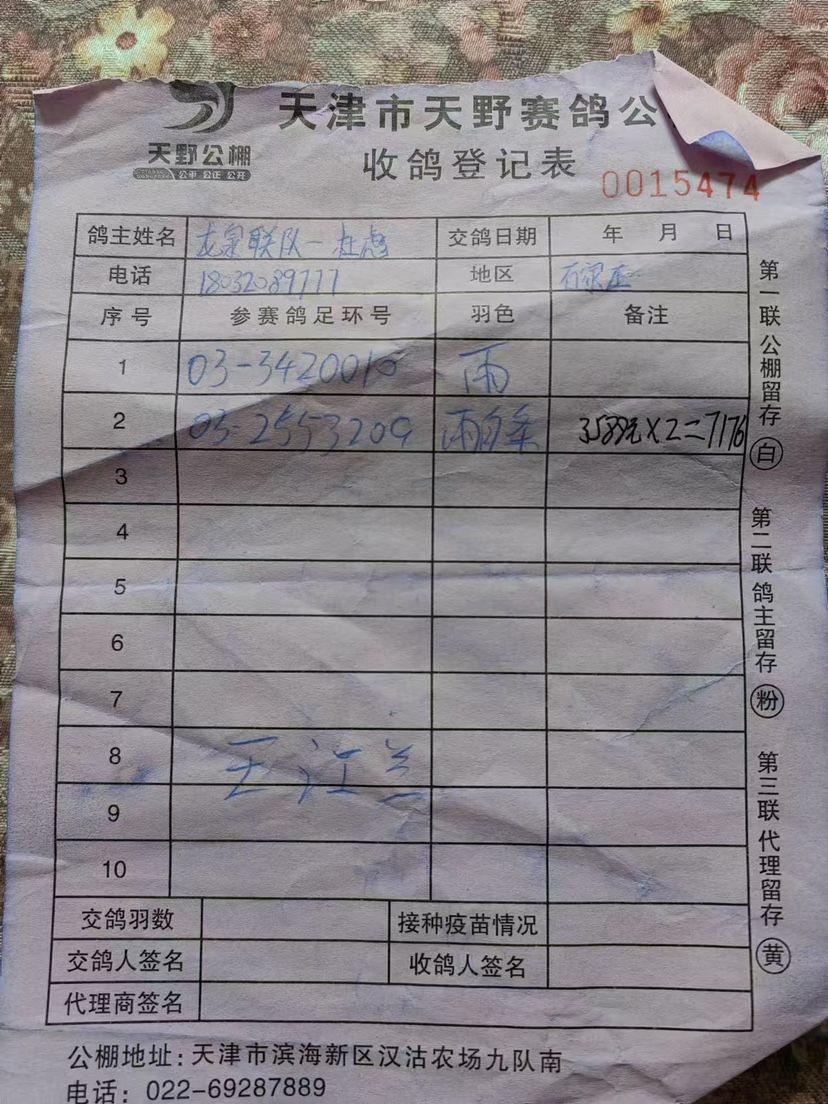 天野公棚
公平 公正 公开
天津市天野赛鸽公
收鸽登记表
0015474
鸽主姓名 龙泉联队一杜彪 交鸽日期 年 月 日
电话 18032089777 地区 石家庄
序号 参赛鸽足环号 羽色 备注
1 03-3420010 雨
2 03-2553209 雨白条 3588元×2=7176
3
4
5
6
7
8 王江兰
9
10
交鸽羽数 接种疫苗情况
交鸽人签名 收鸽人签名
代理商签名
第一联 公棚留存 白
第二联 鸽主留存 粉
第三联 代理留存 黄
公棚地址:天津市滨海新区汉沽农场九队南
电话:022-69287889